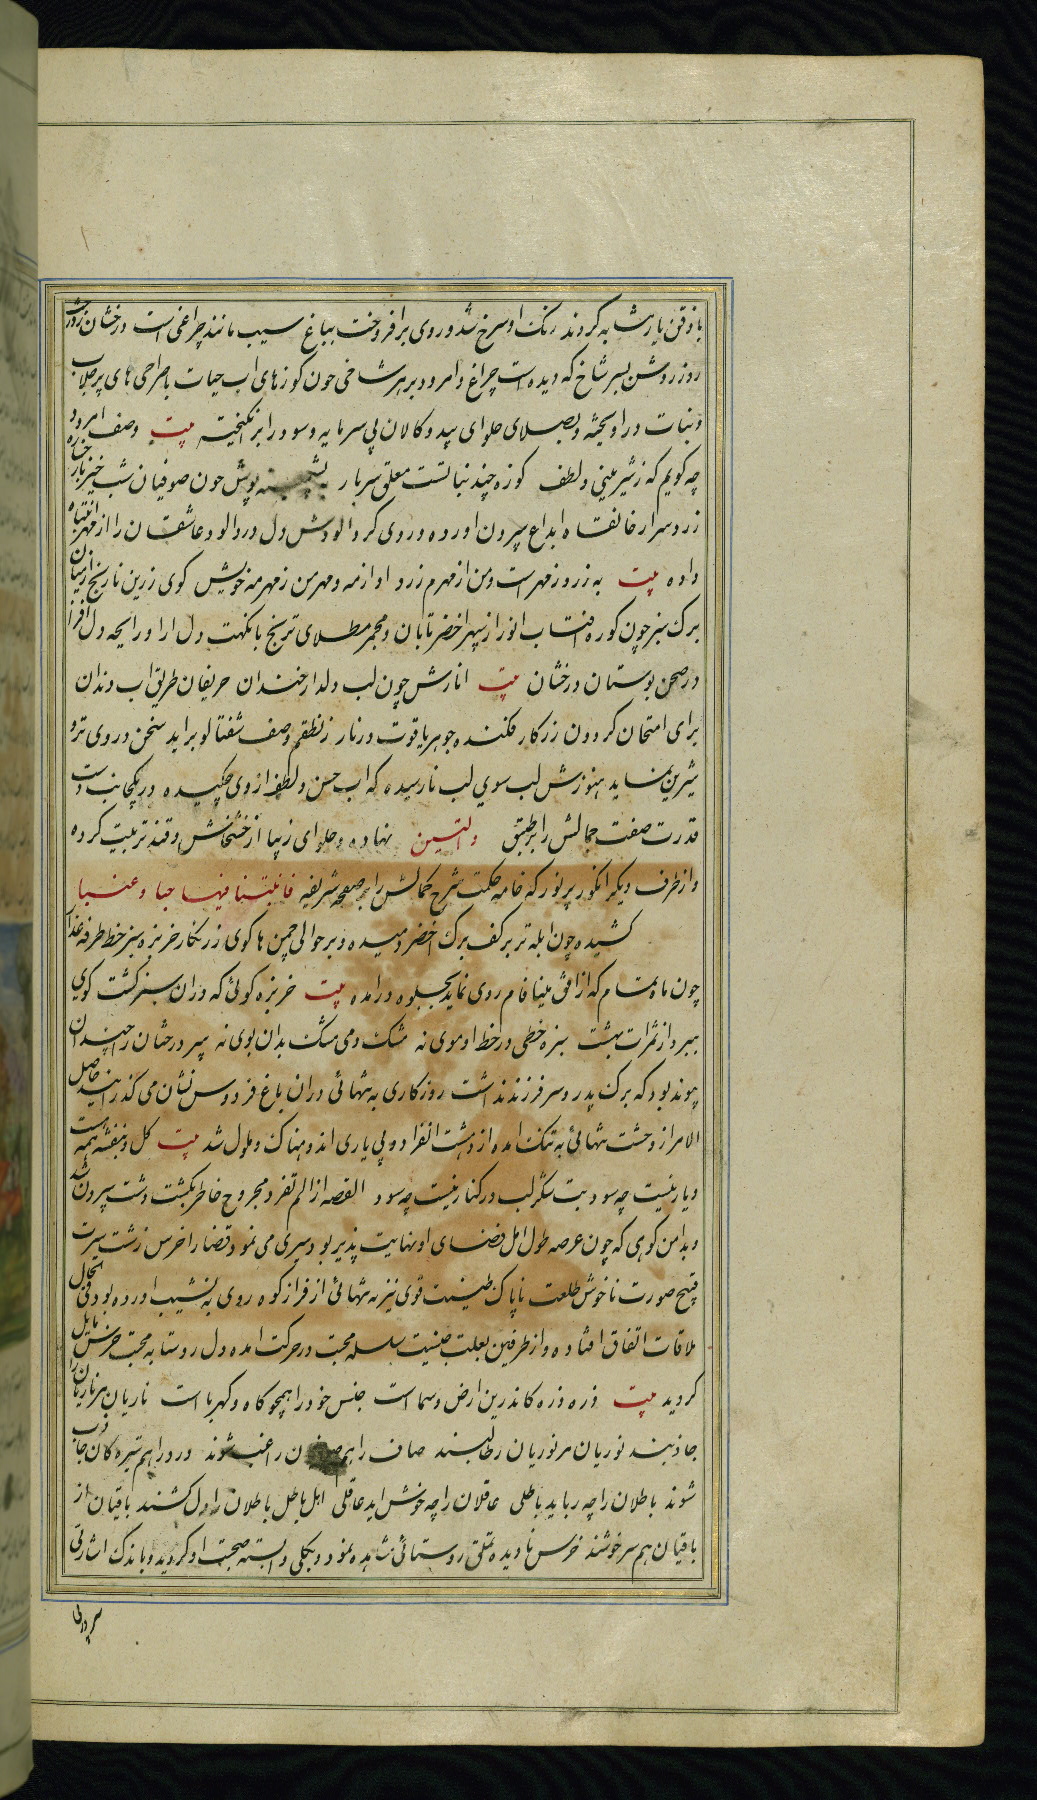 با ذوقن یار مشابه کردند رنگ او سرخ شد و روی برافروخت بباغ سیب مانند چراغی است درخشان ز درخت
روز روشن بسر شاخ که دیده است چراغ و امرود بر هر شاخی چون کوزهای اب حیات با صراحی های پر جلاب
و نبات در اویخته و بصلای حلوای بید و کالان بی سرمایه و سود را برانکیخته بیت وصف امرود
چه کویم که ز شیرینی و لطف کوزه چند نباتست معلق سربار پشمینه پوش چون صوفیان شب خیز رخساره
زرد سر از خانقاه ابداع بیرون اورده و روی کرد الودش دل درد الود عاشقان را از مهر انتباه
داده بیت به زرد ز مهرست و من از مهرم زرد او از مه و مهر من ز مهر مه خویش کوی زرین نارنج از میان
برک سبز چون کوره افتاب انور از سپهر اخضر تابان و مجمر مطلای ترنج با نکهت دل ارا و رایحه دل افزا
در صحن بوستان درخشان بیت انارش چون لب دلدار خندان حریفان طریق اب دندان
برای امتحان کردون زرکار فکنده جوهر یاقوت در نار ز نطقم وصف شفتالو براید سخن در وی تر و
شیرین نماید هنوزش لب سوی لب نارسیده که اب حسن و لطف از وی چکیده در یکجانب دست
قدرت صفت جمالش را بر طبق والتین نهاده و حلوای زیبا از خشخاش و قند تربیت کرده
و از طرف دیکر انکور پر نور که خامه حکمت شرح کمالش را بر صفحه شریفه فانبتنا فیها حبا و عنبا
کشیده چون ابله تر بر کف برک اخضر دمیده و بر حوالی چمن ها کوی زرنکار خربزه سبز خط طرفه عذار
چون ماه تمام که از افق مینا فام روی نماید بجلوه درامده بیت خربزه کوئی که دران سبز کشت کوی
ببرد از ثمرات بهشت سبزه خطی در خط او موی نه مشک و می مشک بدان بوی نه پیر درختان را چندان
پیوند بود که برک پدر و سر فرزند نداشت روزکاری به تنهائی دران باغ فردوس نشان می کذرانید حاصل
الامر از وحشت تنهائی به تنک امده از دهشت انفراد و بی یاری اندوهناک و ملول شد بیت کل و بنفشه همه هست
و یار نیست چه سود بت شکر لب در کنار نیست چه سود القصه از الم تفرد مجروح خاطر بکشت دشت بیرون شد
و بدامن کوهی که چون عرصه طول امل فضای او نهایت پذیر بود سیری می نمود قضا را خرس زشت سیرت
قبیح صورت ناخوش طلعت ناپاک طینت قوی نیز به تنهائی از فراز کوه روی به نشیب اورده بود فی الحال
ملاقات اتفاق افتاده و از طرفین بعلت جنسیت سلسله محبت در حرکت امده دل روستا به محبت خرس مایل
کردید بیت ذره ذره کاندرین ارض و سماست جنس خود را همچو کاه و کهرباست ناریان مر ناریان را
جاذبند نوریان مر نوریان را طالبند صاف را هم صافیان راغب شوند درد را هم تیره کان جاذب
شوند باطلان را چه رباید باطلی عاقلان را چه خوش اید عاقلی اهل باطل باطلان را دل کشند باقیان از
باقیان هم سرخوشند خرس نادیده تملق روستائی مشاهده نمود و بکلی وابسته صحبت او کردید و باندک اشارتی